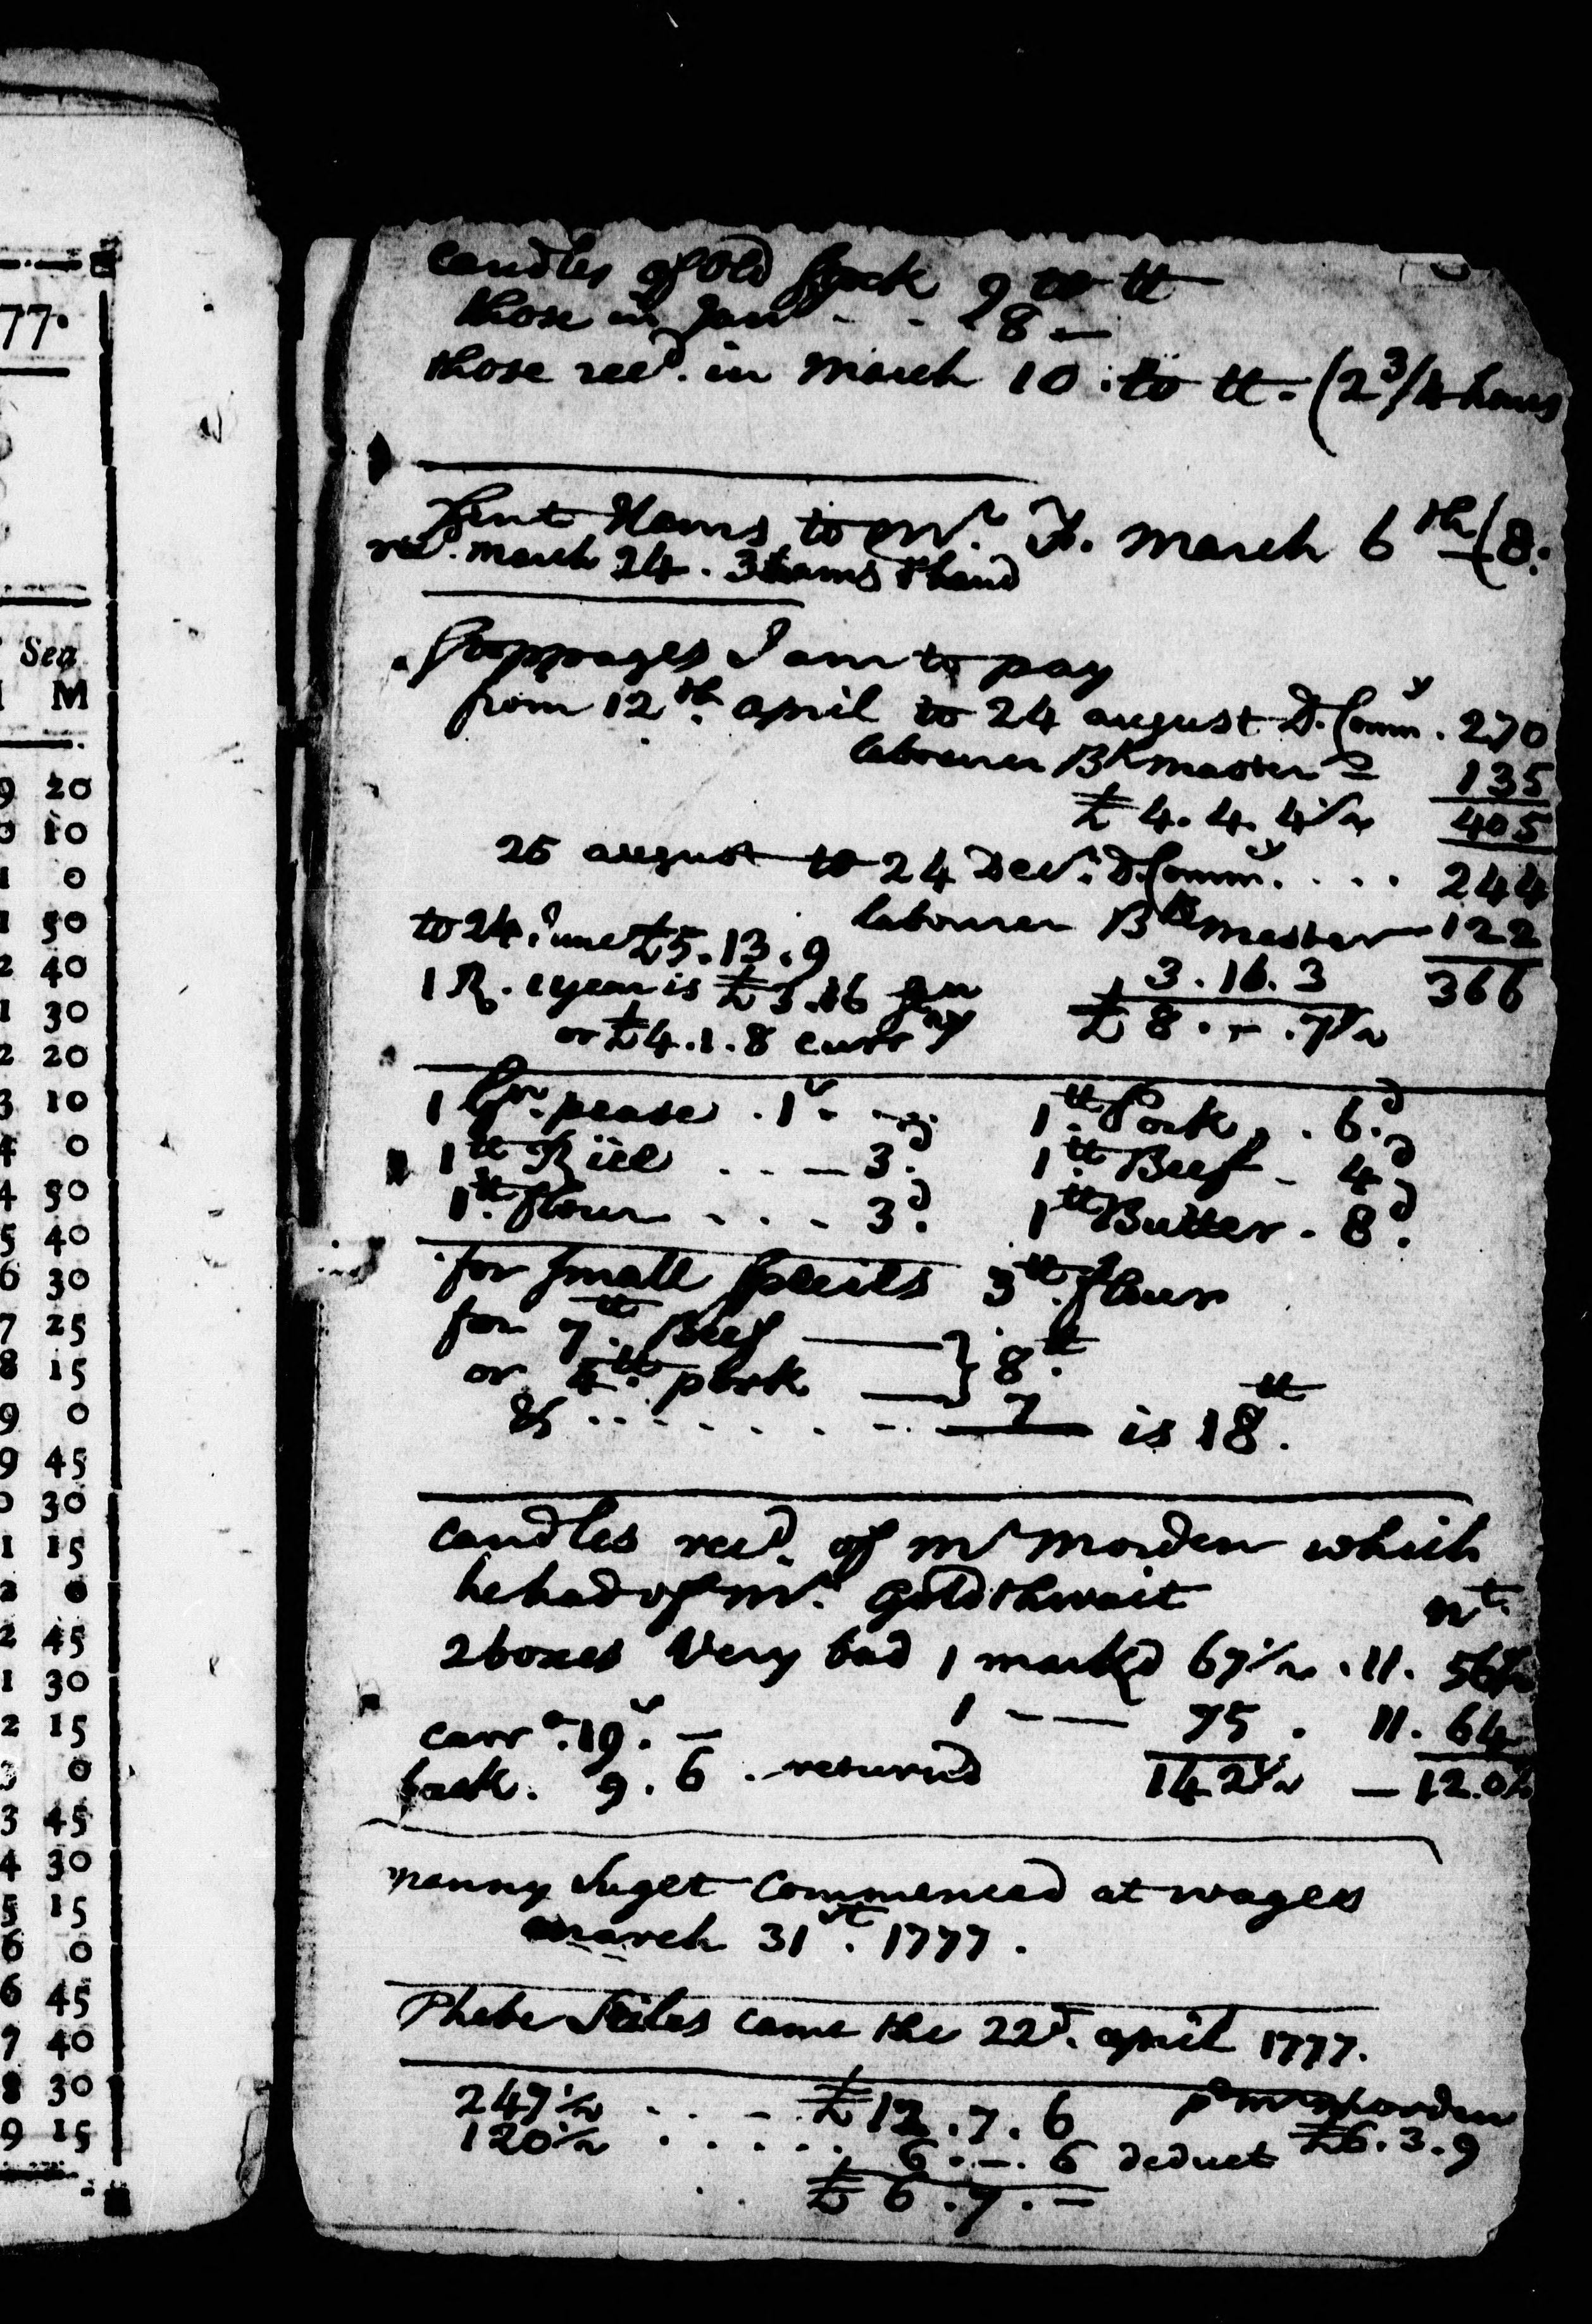 77.
Sea
M
9 20
0 10
1 0
1 50
2 40
1 30
2 20
3 10
4 0
4 50
5 40
6 30
7 25
8 15
9 0
9 45
0 30
1 15
2 0
2 45
1 30
2 15
3 0
3 45
4 30
5 15
6 0
6 45
7 40
8 30
9 15
candles of old Stock 9 to tt
those in Jan - - 8 —
those reed. in march 10 to tt. (2 3/4 hours
Sent Hams to Mr. F. march 6th (8.
red. march 24. 3 hams & hand
Stoppages I am to pay
from 12th. april to 24 august D. Commy. 270
labourer Bk master 135
£ 4. 4. 4 1/2 405
25 august to 24 Decr. D. Commy. . . . 244
labourer Bk master 122
to 24 June £5. 13. 9 3. 16. 3 366
1 R. 1 year is £3. 16
or £4. 1. 8 curry £ 8. - . 7 1/2
1 Gn. pease . 1s. - 1tt. Pork . . 6.d
1tt Rice . . — 3.d 1tt Beef - 4d
1tt. flour - . - 3d. 1tt Butter - 8d.
for small species 3tt. flour
for 7tt. Beef — } 8tt.
or 4tt. pork —
& . . . . . . 7 is 18tt.
candles reed. of Mr Morden which
he had of Mr. Goldthwait nt.
2 boxes Very bad 1 marked 67 1/2 . 11. 56 1/2
1 - — 75 . 11. 64
carre. 19s. —
back. 9. 6 . returned 142 1/2 — 120 1/2
Nanny Suget Commenced at wages
march 31st. 1777.
Phebe Stiles came the 22d. april 1777.
247 1/2 . . - £12. 7. 6 pr Mr Morden
120 1/2 . . . . 6. —. 6 deduct £6. 3. 9
£ 6. 7. —